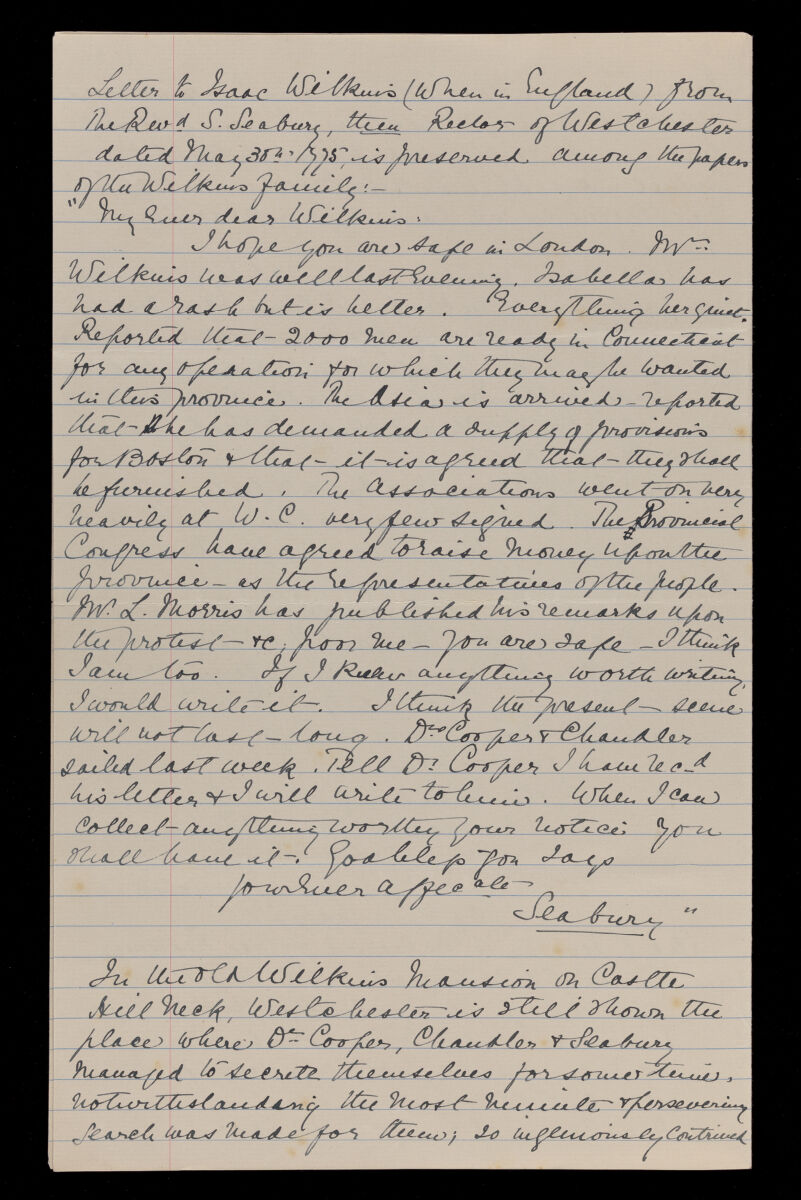 Letter to Isaac Wilkins (When in England) from
The Revd S. Seabury, then Rector of Westchester
dated May 30th 1775, is preserved among the papers
of the Wilkins family:-
"My Ever dear Wilkins:
I hope you are safe in London. Mrs
Wilkins was well last Evening. Isabella has
had a rash but is better. Everything here quiet.
Reported that - 2000 men are ready in Connecticut
for any operation for which they may be wanted
in this province. The Asia is arrived - reported
that - She has demanded a supply of provisions
for Boston & that - it - is agreed that - they shall
be furnished. The Associations went on very
heavily at W. C. very few signed. The Provincial
Congress have agreed to raise money upon the
province - as the representatives of the people.
Mr. L. Morris has published his remarks upon
the protest - &c; poor me - you are safe - I think
I am too. If I knew anything worth writing,
I would write it. I think the present - scene
will not last - long. Drs Cooper & Chandler
sailed last week. Tell Dr Cooper I have rec-d
his letter & I will write to him. When I can
collect - anything worthy your notice you
shall have it. God bless you says
your Ever affecate
Seabury"
In the old Wilkins Mansion on Castle
Hill Neck, Westchester is still shown the
place where Drs Cooper, Chandler & Seabury
managed to secrete themselves for some time,
notwithstanding the most minute & persevering
search was made for them; so ingeniously contrived